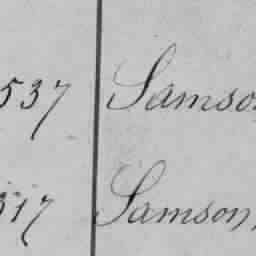 537 Samson
517 Samson,